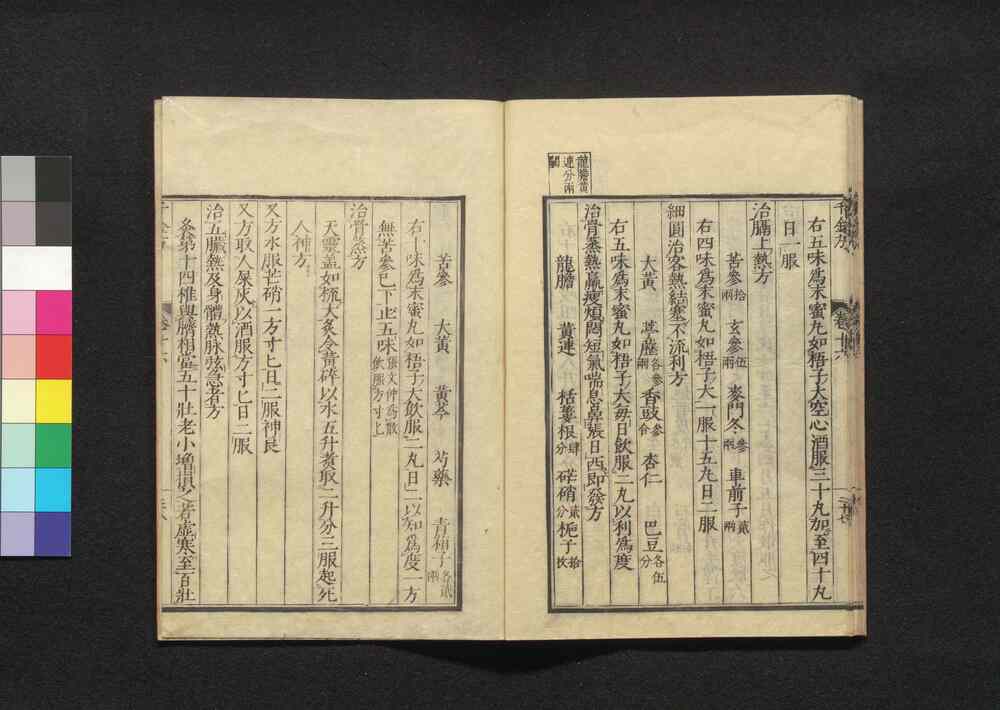 龍膽黃
連分兩
闕
右五味爲末蜜丸如梧子大空心酒服三十丸加至四十丸
日一服
治膈上熱方
苦參拾兩 玄參伍兩 麥門冬參兩 車前子貳兩
右四味爲末蜜丸如梧子大一服十五丸日二服
細圓治客熱結塞不流利方
大黃 葶藶各參兩 香豉參合 杏仁 巴豆各伍分
右五味爲末蜜丸如梧子大每日飲服二丸以利爲度
治骨蒸熱羸瘦煩悶短氣喘息鼻張日西卽發方
龍膽 黃連 栝蔞根肆分 芒硝貳分 梔子拾枚
苦參 大黃 黃芩 芍藥 青葙子各貳兩
右十味爲末蜜丸如梧子大飲服二丸日二以知爲度一方
無苦參已下止五味張文仲爲散飲服方寸匕
治骨蒸方
天靈蓋如梳大炙令黃碎以水五升煮取二升分三服起死
人神方
又方水服芒硝一方寸匕日二服神良
又方取人屎灰以酒服方寸匕日二服
治五臟熱及身體熱脉弦急者方
灸第十四椎與臍相當五十壯老小增損之若虛寒至百壯